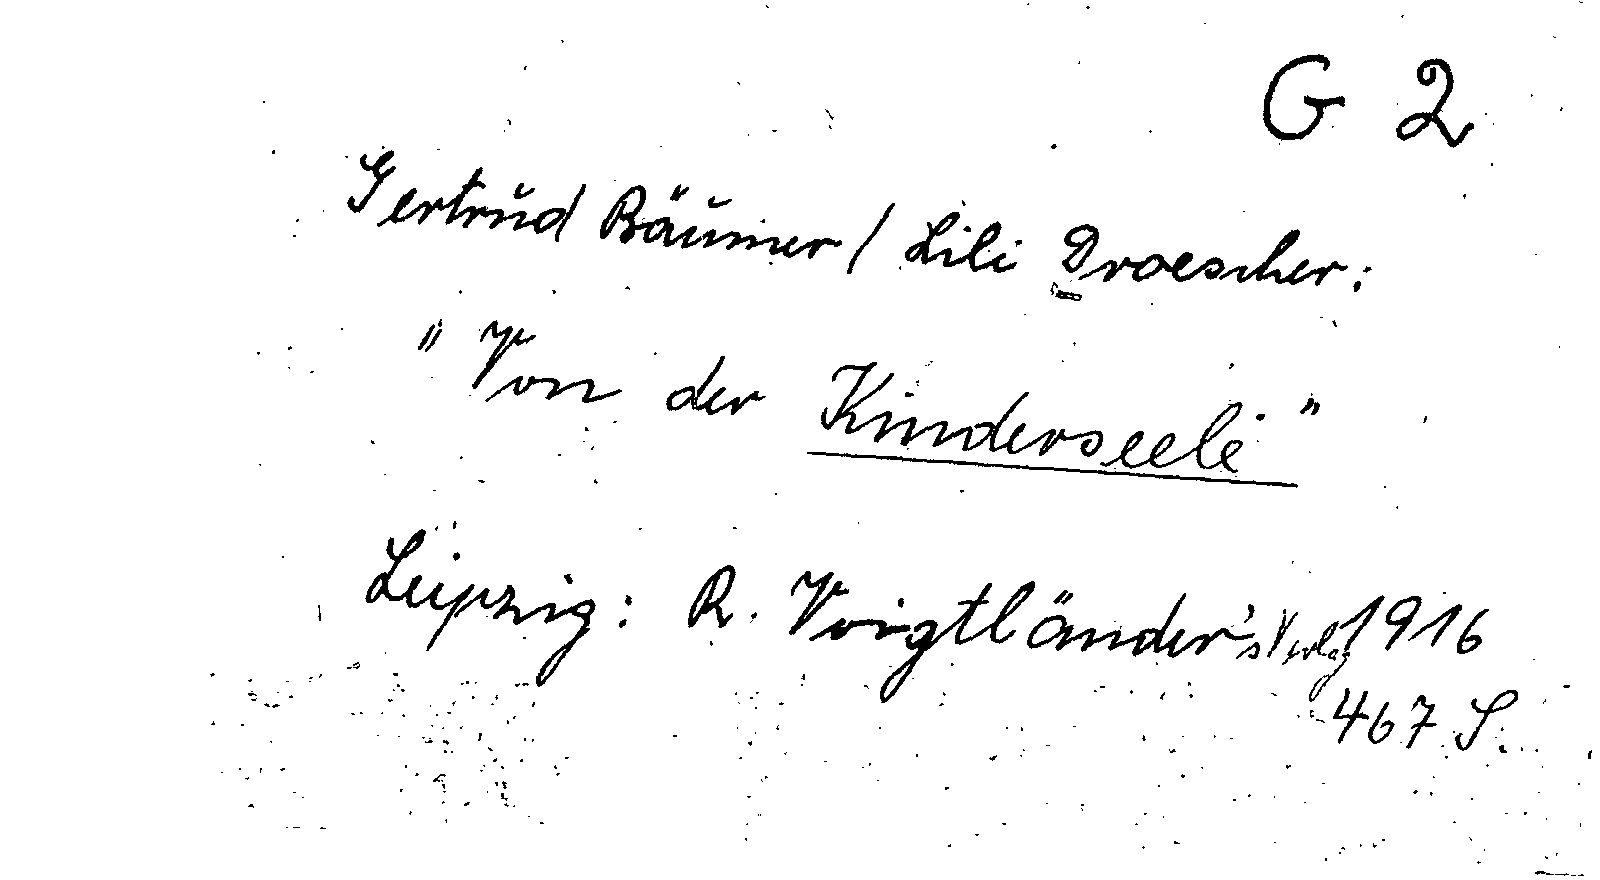 G 2
Gertrud Bäumer / Lili Droescher:
"Von der Kinderseele"
Leipzig: R. Voigtländer's Verlag 1916
467 S.